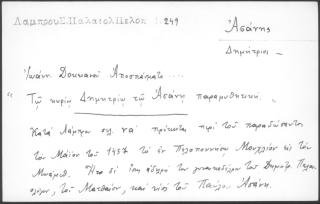 Λάμπρου Σ. Παλαιολ. Πελοπ. 249
Ἀσάνης
Δημήτριος –
Ἰωάνη Δοκειανοῦ Ἀποσπάσματα ....
" Τῷ κυρίῳ Δημητρίῳ τῷ Ἀσάνῃ παραμυθητική
Κατὰ Λάμπρο νὰ πρόκειται περὶ τοῦ παραδώσαντος
τὸν Μάϊον τοῦ 1457 τὸ ἐν Πελοποννήσῳ Μουχλίον εἰς τὸν
Μωάμεθ. Ἦτο δὲ ἀδελφοῦ τοῦ Δημητρ. Παλαι-
ολόγου, τοῦ Ματθαίου, καὶ υἱὸς τοῦ Παύλου Ἀσάνη.